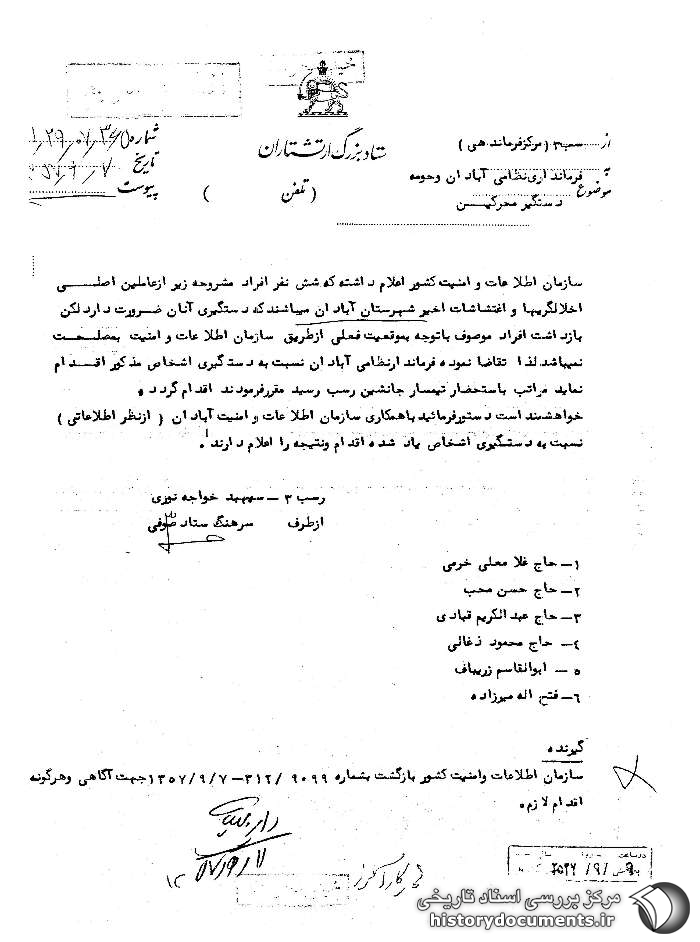 ستاد بزرگ ارتشتاران
از سب۳ ( مرکز فرماندهی )
به فرمانداری نظامی آبادان وحومه
موضوع دستگیر محرکیـــن
شماره
تاریخ
پیوست
( تلفن )
سازمان اطلاعات و امنیت کشور اعلام داشته که شش نفر افراد مشروحه زیر از عاملین اصلـــی
اخلالگریها و اغتشاشات اخیر شهرستان آبادان میباشند که دستگیری آنان ضرورت دارد لکن
بازداشت افراد موصوف باتوجه بموقعیت فعلی از طریق سازمان اطلاعات و امنیت بمصلحت
نمیباشد لذا تقاضا نموده فرماندار نظامی آبادان نسبت به دستگیری اشخاص مذکور اقـــدام
نماید مراتب باستحضار تیمسار جانشین رسب رسید مقرر فرمودند اقدام گردد و
خواهشمند است دستور فرمائید باهمکاری سازمان اطلاعات و امنیت آبادان ( ازنظر اطلاعاتی )
نسبت به دستگیری اشخاص یاد شده اقدام ونتیجه را اعلام دارند.
رسب ۳ – سپهبد خواجه نوری
ازطرف سرهنگ ستاد صوفی
۱– حاج غلامعلی خرمی
۲– حاج حسن محب
۳– حاج عبدالکریم قبادی
۴– حاج محمود ذغالی
۵ – ابوالقاسم زریباف
۶– فتح اله میرزاده
گیرنده
سازمان اطلاعات وامنیت کشور بازگشت بشماره ۹۰۹۹ /۳۱۲–۱۳۵۷/۹/۷ جهت آگاهی وهرگونه
اقدام لازم.
مرکز بررسی اسناد تاریخی
historydocuments.ir